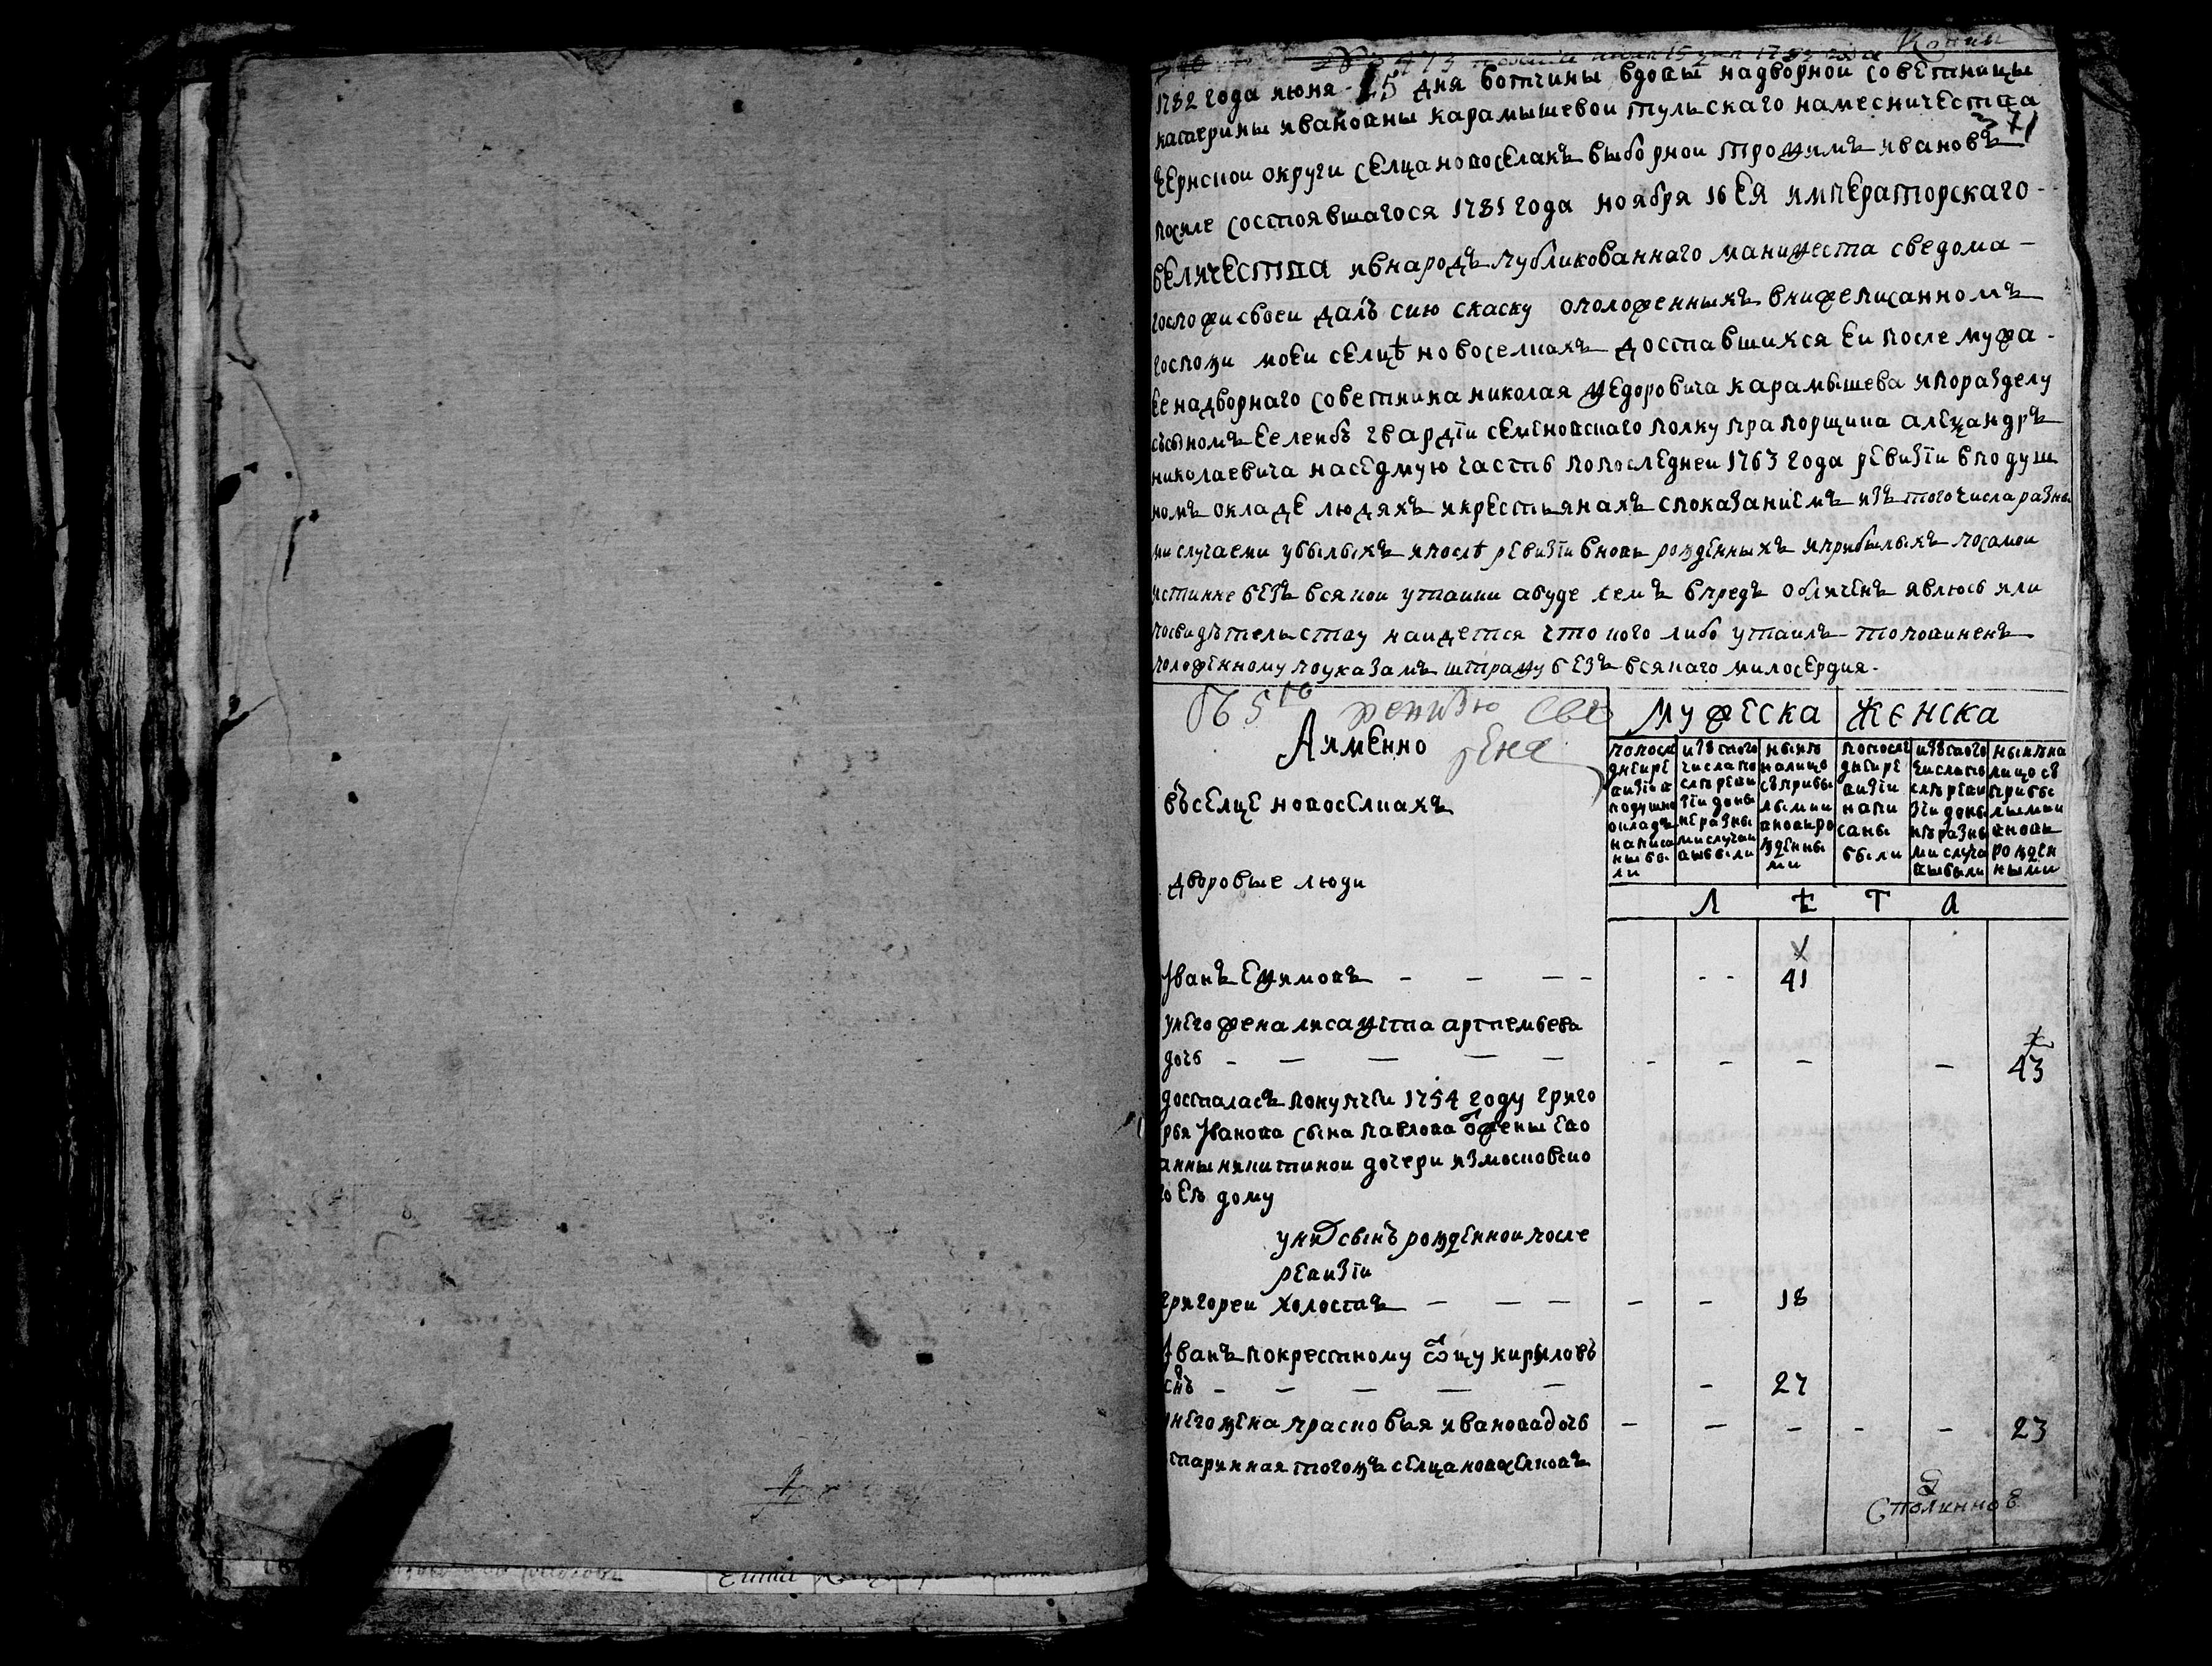 Копии
№ 473 подана июня 15 дня 1782 года
1782 года июня 15 дня вотчины вдовы надворнои советницы
катерины ивановны карамышевои тульскаго намесничества
371
чернскои округи селца новоселакъ выборнои трофимъ ивановъ
после состоявшагося 1781 года ноября 16 ея императорскаго
величества ивнародъ публикованнаго манифеста сведома
госпожи своеи далъ сию скаску оположенныхъ внижеписанномъ
госпожи моеи селцѣ новоселкахъ доставшихся еи после мужа
ее надворнаго советника николая федоровича карамышева ипоразделу
съсыномъ ее леибъ гвардіи семеновскаго полку прапорщика алеѯандръ
николаевича наседмую часть попоследнеи 1763 года ревизіи вподуш
номъ окладе людяхъ икрестьянахъ споказаниемъ изъ того числа разны
ми случаеми убылыхъ ипослѣ ревизіи вновь рожденныхъ иприбылыхъ посамои
истинне безъ всякои утаики абуде чемъ впредь обличенъ явлюсь или
посвидѣтельству наидется что кого либо утаилъ то повиненъ
положенному поуказамъ штрафу безъ всякаго милосердия
Въ 5ю ревизю све
рена
Аименно
мужеска женска
попосле днеи ре визіи в подушно окладъ написа ны бы ли
изъ того числа по слѣ реви зіи до ны не разны ми случаи выбыли
нынѣ налицо съприбы лыми и вновь ро жденны ми
попосле днеи ре визіи напи саны были
изъ того числа по слѣ реви зіи до ны нѣ разны ми случа выбыли
нынѣ на лицо съ прибы лыми и вновь рожден ными
въ селце новоселкахъ
дворовые люди
л ѣ т а
Иванъ Ефимовъ - - - - 41
унего жена лисафета артемьева
дочь - - - - - 43
досталасъ покупчеи 1754 году григо
рья Иванова сына павлова ѿжены ево
анны никитинои дочери измосковско
го еѣ дому
унихъ сынъ рожденнои после
ревизіи
григореи холостъ - - - 18
Иванъ покрестному ѿцу кириловъ
снъ - - - - - 27
унего жена прасковья иванова дочь - - - - - 23
старинная тогожъ селца новоселковъ
Столинков